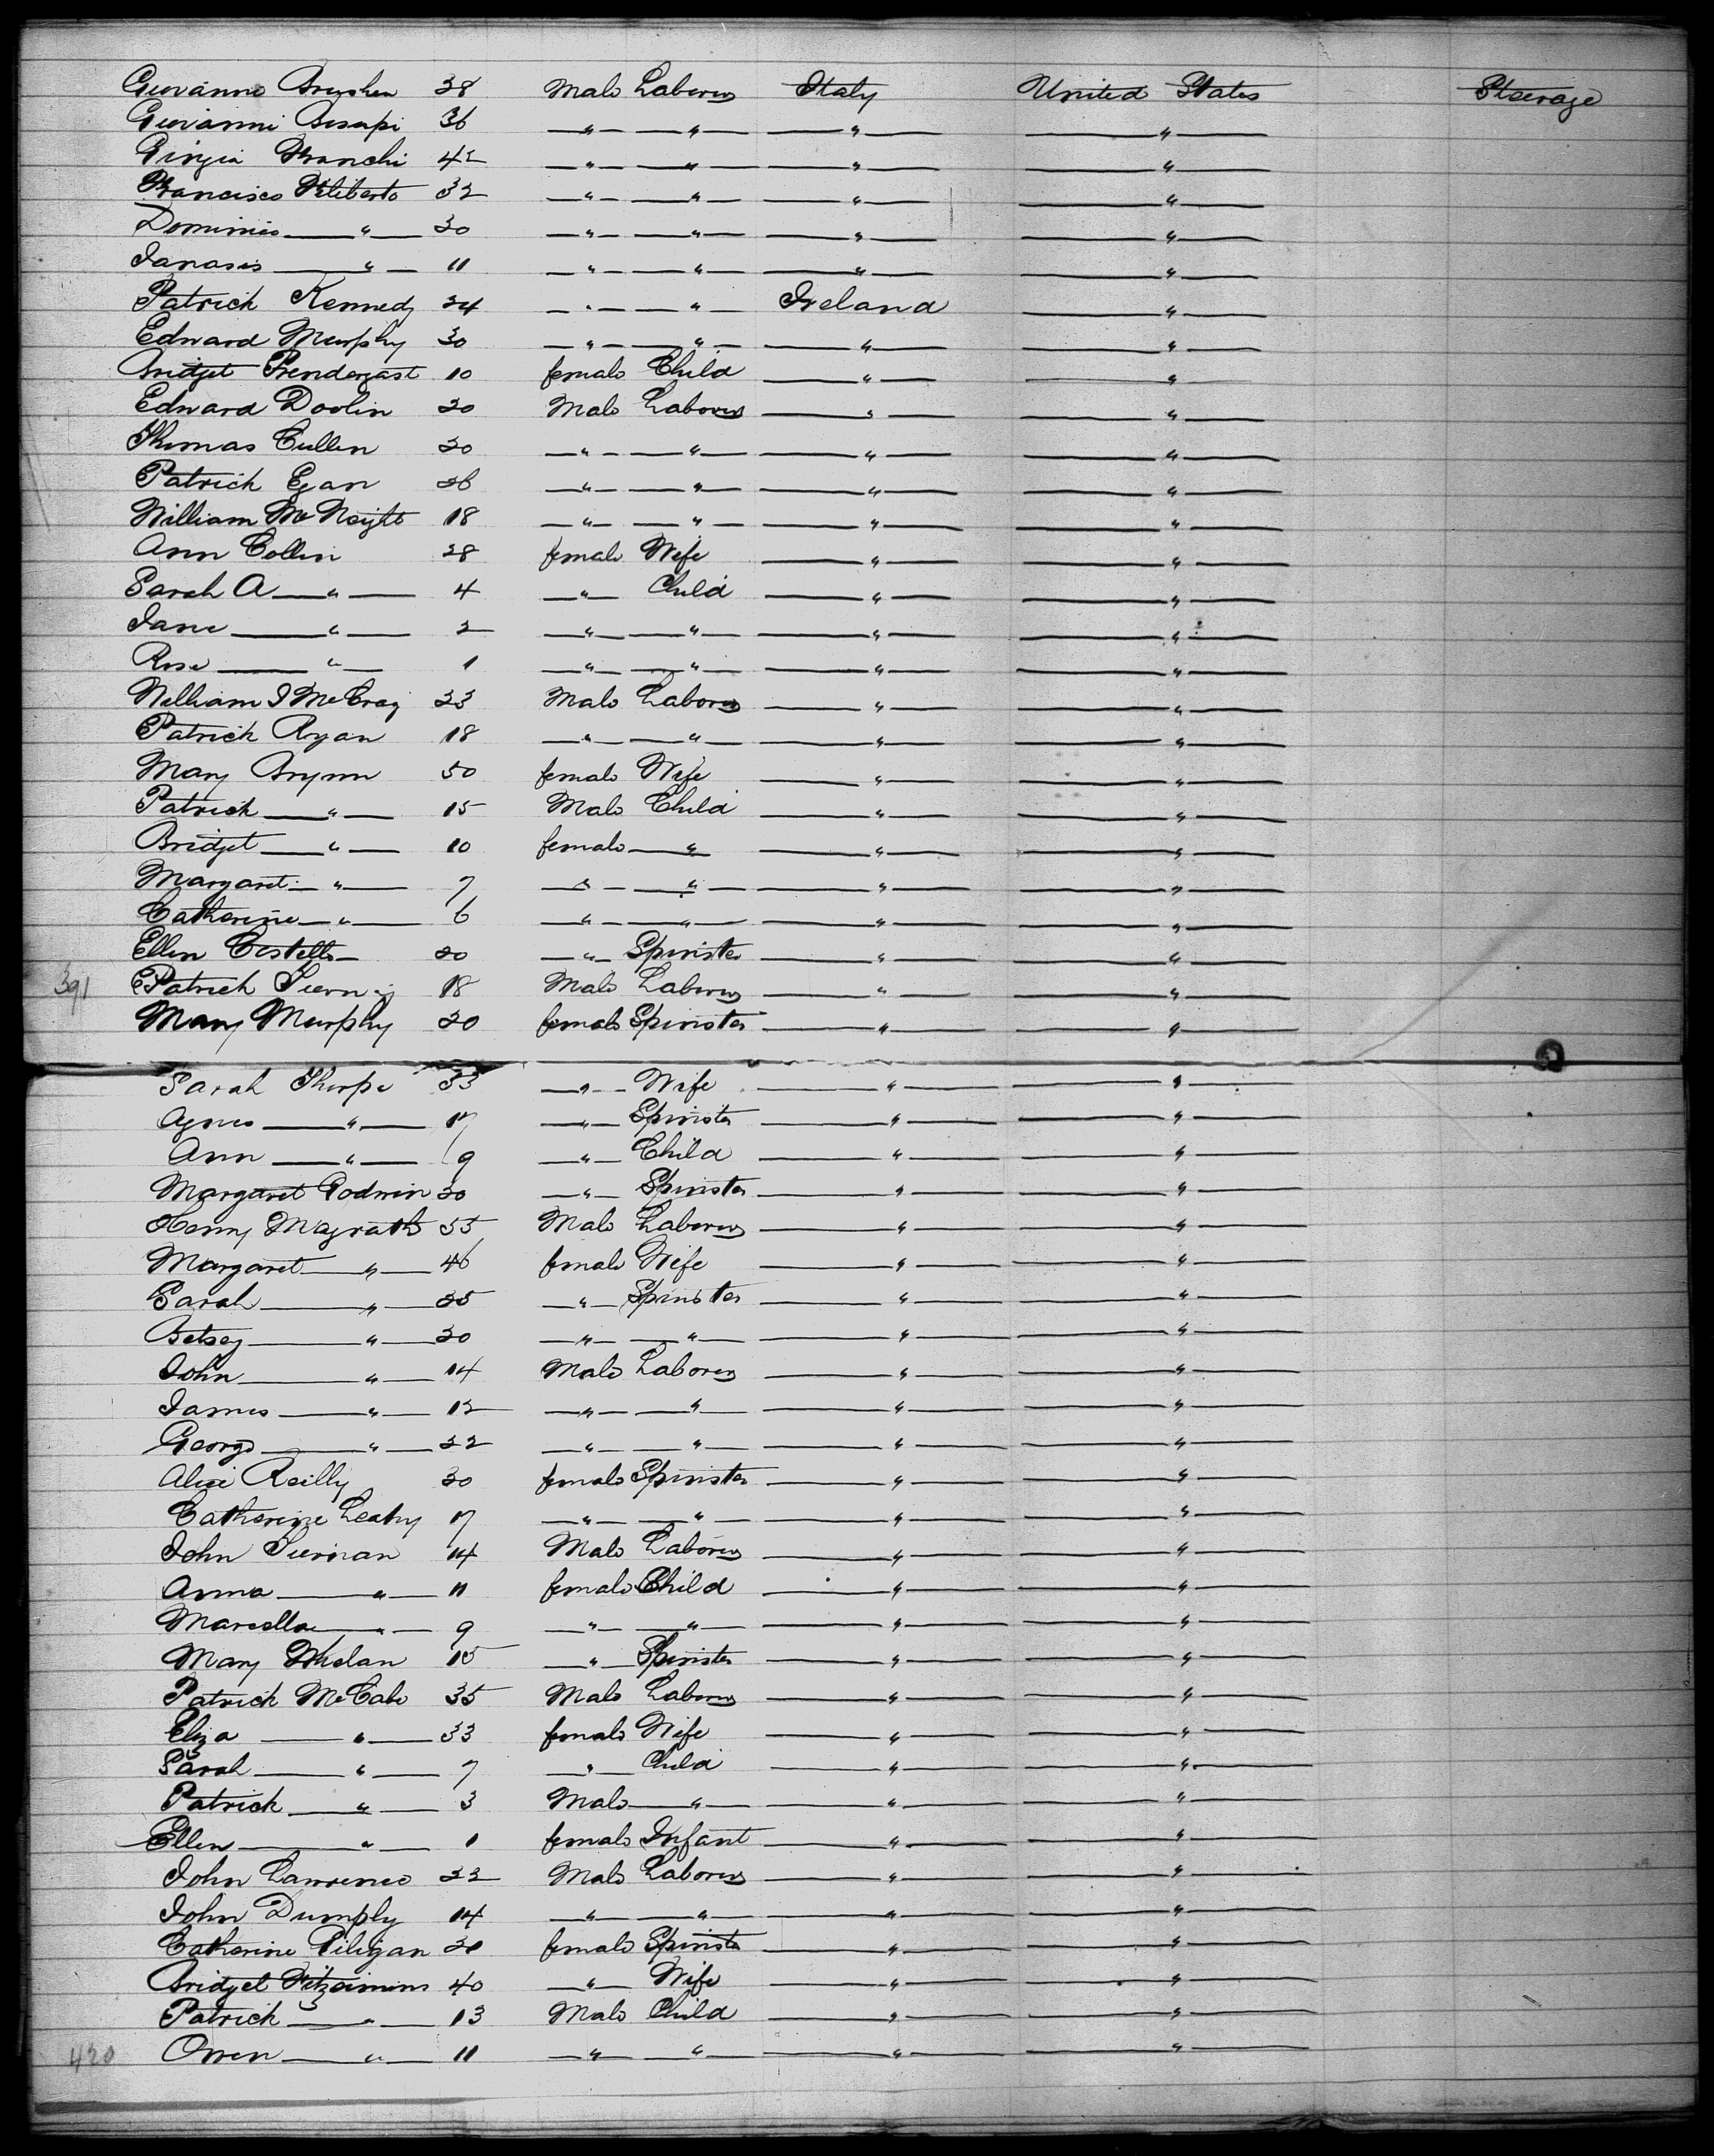 Giovanni Brushen 38 Male Laborer Italy United States Steerage
Giovanni 36 —"— —"— —"— —"—
Franchi 42 —"— —"— —"— —"—
Francisco Filiberto 32 —"— —"— —"— —"—
Dominico —"— 30 —"— —"— —"— —"—
—"— 11 —"— —"— —"— —"—
Patrick Kennedy 24 —"— —"— Ireland —"—
Edward Murphy 30 —"— —"— —"— —"—
Bridget Prendergast 10 female Child —"— —"—
Edward Doolin 20 Male Laborer —"— —"—
Thomas Cullen 20 —"— —"— —"— —"—
Patrick Egan 26 —"— —"— —"— —"—
William 18 —"— —"— —"— —"—
Ann Collin 28 female Wife —"— —"—
Sarah A —"— 4 —"— Child —"— —"—
Jane —"— 2 —"— —"— —"— —"—
Rose —"— 1 —"— —"— —"— —"—
William J McCray 23 Male Laborer —"— —"—
Patrick Ryan 18 —"— —"— —"— —"—
Mary Brynn 50 female Wife —"— —"—
Patrick —"— 15 Male Child —"— —"—
Bridget —"— 10 female —"— —"— —"—
Margaret —"— 7 —"— —"— —"— —"—
Catherine —"— 6 —"— —"— —"— —"—
Ellen Costello 20 —"— Spinster —"— —"—
391 Patrick 18 Male Laborer —"— —"—
Mary Murphy 20 female Spinster —"— —"—
Sarah Thorpe 33 —"— Wife —"— —"—
Agnes —"— 17 —"— Spinster —"— —"—
Ann —"— 9 —"— Child —"— —"—
Margaret Godwin 30 —"— Spinster —"— —"—
Henry Magrath 55 Male Laborer —"— —"—
Margaret —"— 46 female Wife —"— —"—
Sarah —"— 25 —"— Spinster —"— —"—
Betsey —"— 20 —"— —"— —"— —"—
John —"— 14 Male Laborer —"— —"—
James —"— 12 —"— —"— —"— —"—
George —"— 22 —"— —"— —"— —"—
Alice Reilly 30 female Spinster —"— —"—
Catherine Leahy 17 —"— —"— —"— —"—
John Tiernan 14 Male Laborer —"— —"—
Anna —"— 11 female Child —"— —"—
Marcella —"— 9 —"— —"— —"— —"—
Mary Whelan 15 —"— Spinster —"— —"—
Patrick McCabe 35 Male Laborer —"— —"—
Eliza —"— 33 female Wife —"— —"—
Sarah —"— 7 —"— Child —"— —"—
Patrick —"— 3 Male —"— —"— —"—
Ellen —"— 1 female Infant —"— —"—
John Lawrence 22 Male Laborer —"— —"—
John Dumply 14 —"— —"— —"— —"—
Catherine Giligan 20 female Spinster —"— —"—
Bridget Fitzsimmons 40 —"— Wife —"— —"—
Patrick —"— 13 Male Child —"— —"—
420 Owen —"— 11 —"— —"— —"— —"—